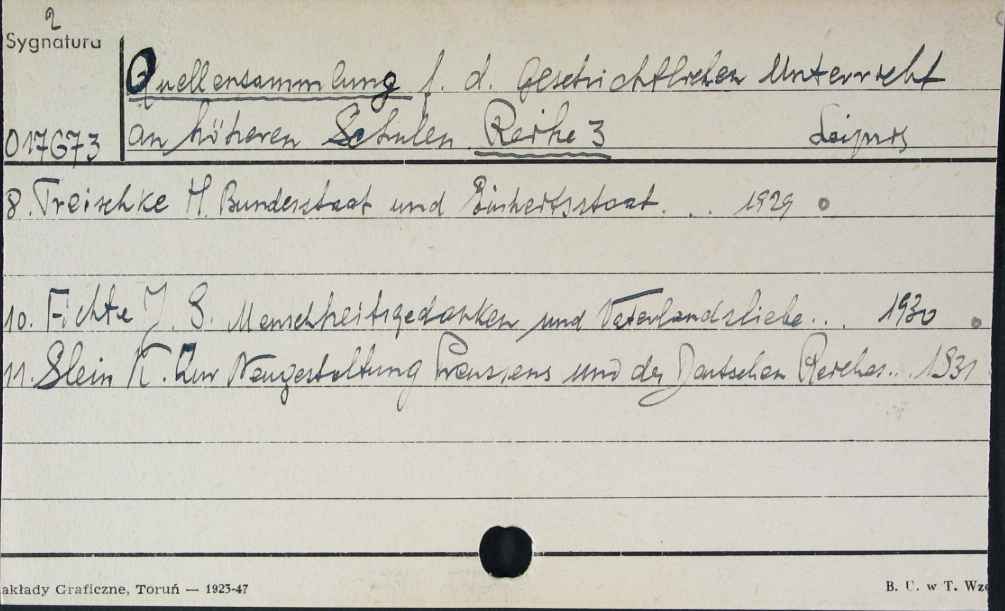 2
Sygnatura
Quellensammlung f. d. geschichtlichen Unterricht
017673 an höheren Schulen Reihe 3 Leipzig
8. Treischke H. Bundesstaat und Einheitsstaat... 1929
10. Fichte J. G. Menschheitsgedanken und Vaterlandsliebe... 1930
11. Stein K. Zur Neugestaltung Preussens und des Deutschen Reiches... 1931
akłady Graficzne, Toruń — 1923-47
B. U. w T. Wzó